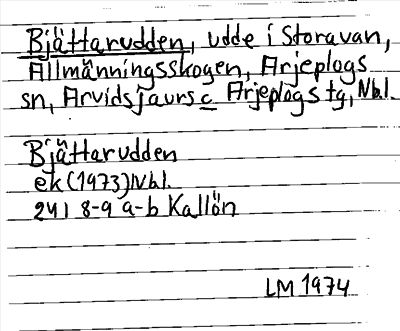 Bjättarudden, udde i Storavan,
Allmänningsskogen, Arjeplogs
sn, Arvidsjaurs c Arjeplogs tg, Nbl.
Bjättarudden
ek (1973) Nbl.
24I 8-9 a-b Kallön
LM 1974